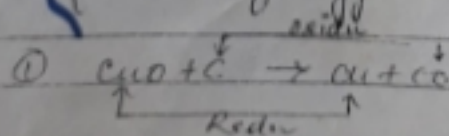 oxidn
① CuO + C → Cu + CO
Redn